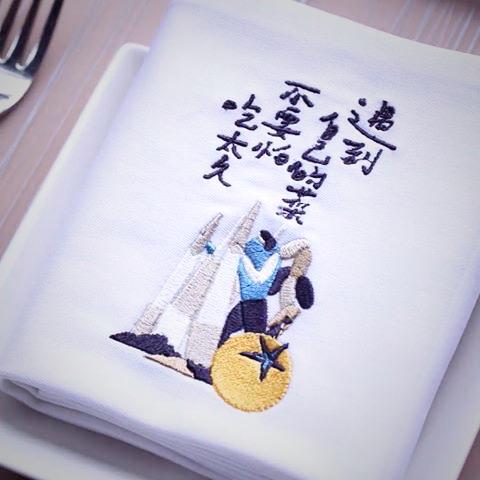 遇到
自己的菜
不要怕
吃太久